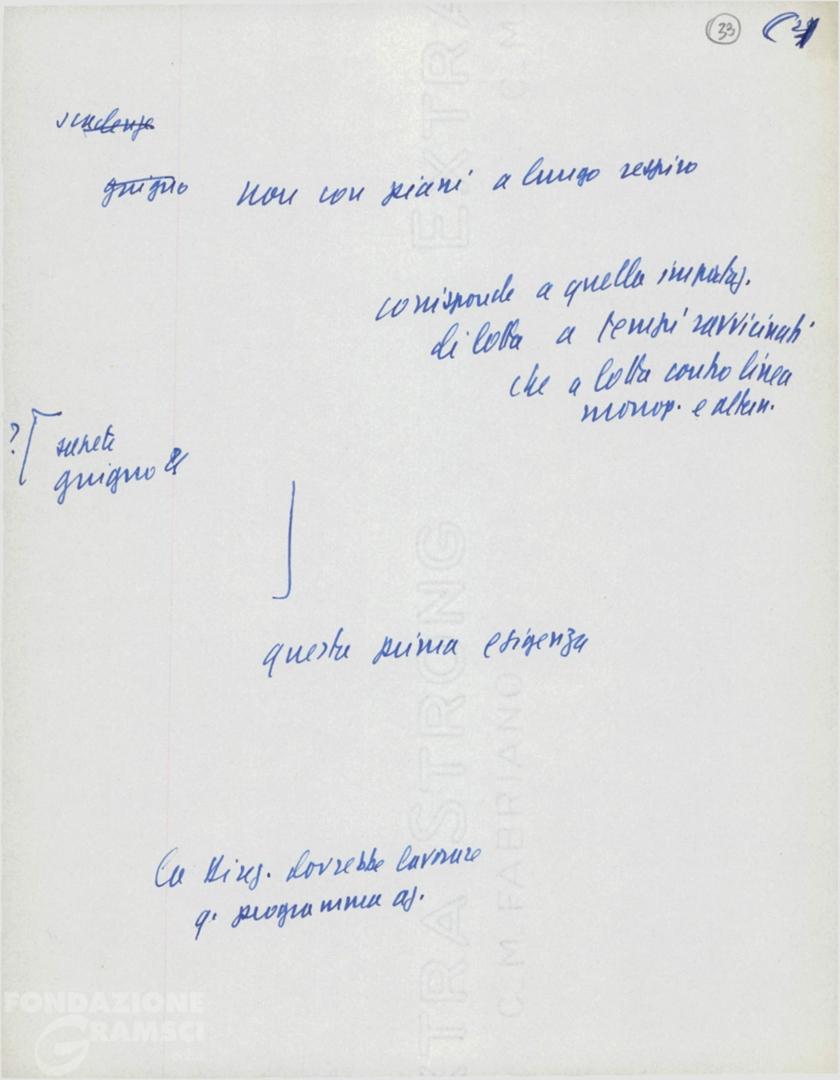 33
scadenze
giugno non con piani a lungo respiro
corrisponde a quella impostaz.
di lotta a tempi ravvicinati
che a lotta contro linea
monop. e altern.
?
sapete
giugno
questa prima esigenza
La Direz. dovrebbe lavorare
q. programma az.
EXTRA STRONG
C.M. FABRIANO
FONDAZIONE
GRAMSCI